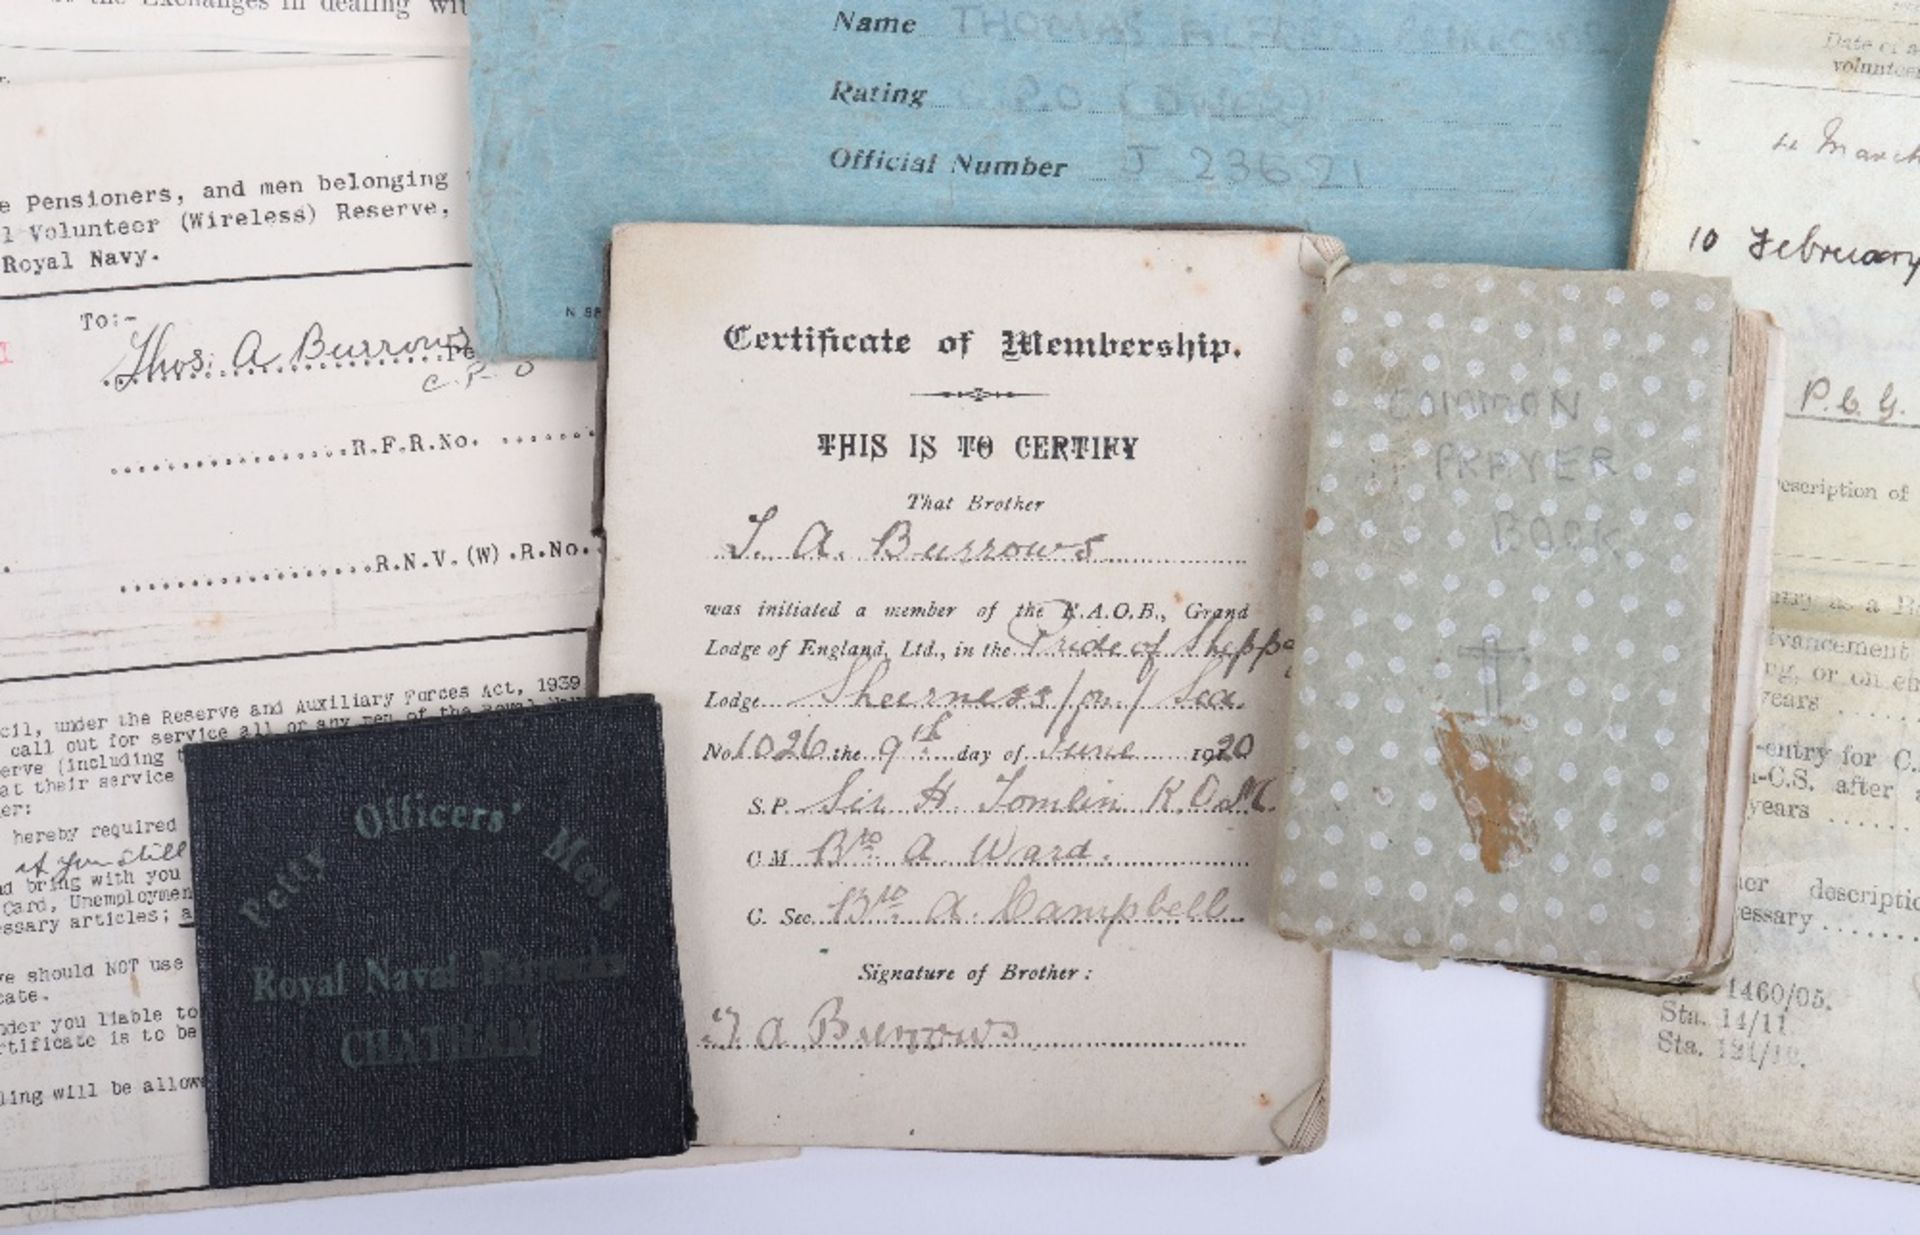 the Exchanges in dealing
Pensioners, and men belonging
Volunteer (Wireless) Reserve,
Royal Navy.
To:-
Thos. A Burrows
C.P.O
R.F.R.No.
R.N.V.(W).R.No.
under the Reserve and Auxiliary Forces Act, 1939
call out for service all or any men of the Royal
(including
at their service
hereby required
if you still
bring with you
Card, Unemploymen
essary articles;
should NOT use
cate.
you liable to
certificate is to be
ling will be allowe
Name THOMAS ALFRED BURROWS
Rating C.P.O (
Official Number J 23621
Certificate of Membership.
THIS IS TO CERTIFY
That Brother
T. A. Burrows
was initiated a member of the R.A.O.B., Grand
Lodge of England, Ltd., in the Pride of Sheppe
Lodge Sheerness/on/Sea.
No 1026 the 9th day of June 1920
S.P. Sir H Tomlin K.O.M.
C M Bro. A Ward.
C. Sec. Bro. A. Campbell
Signature of Brother:
T A Burrows
Petty Officers' Mess
Royal Naval Barracks
CHATHAM
COMMON
PRAYER
BOOK
Date of
volunteer
4 March
10 February
P.C.G.
escription of
ntry as a
dvancement
ng, or on
years
-entry for C.
-C.S. after
years
description
cessary
1460/05.
Sta. 14/11.
Sta. 121/12.